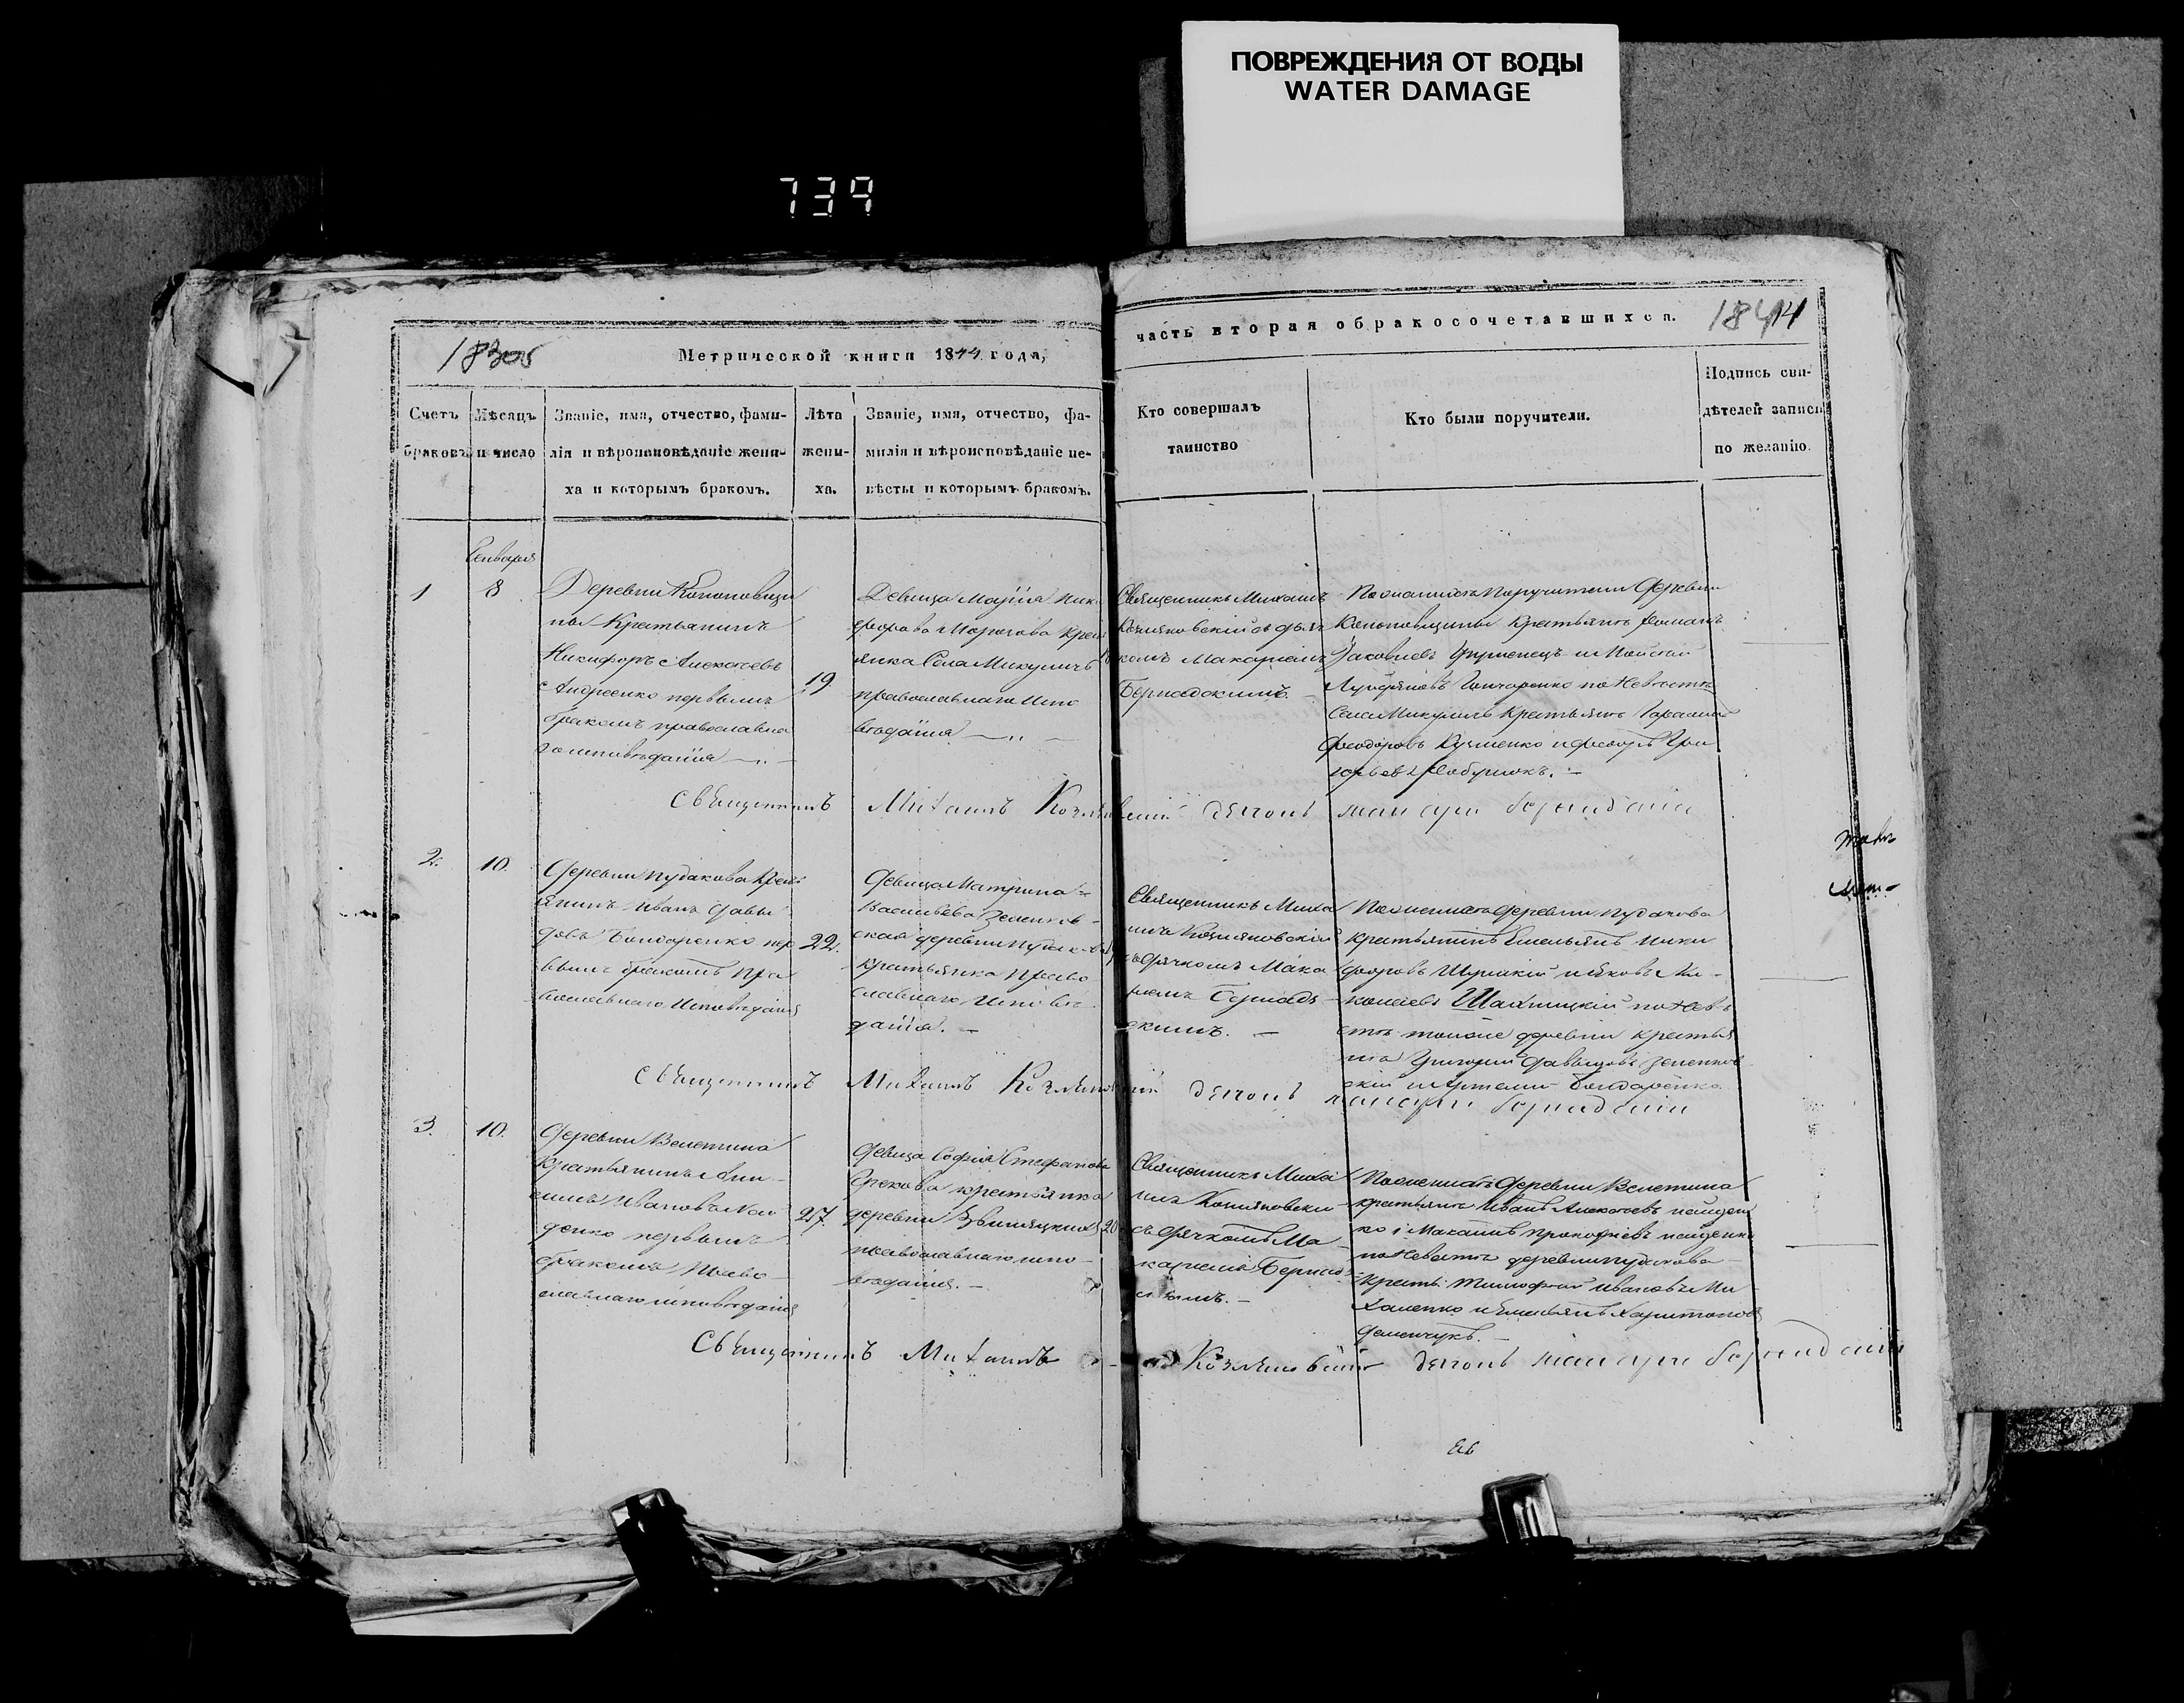 ПОВРЕЖДЕНИЯ ОТ ВОДЫ
WATER DAMAGE
739
Метрической книги 1844 года,
часть вторая о бракосочетавшихся.
1844
Счетъ браковъ
Мѣсяцъ и число
Званіе, имя, отчество, фами-
лія и вѣроисповѣданіе жени-
ха и которымъ бракомъ.
Лѣта
жени-
ха.
Званіе, имя, отчество, фа-
милія и вѣроисповѣданіе не-
вѣсты и которымъ бракомъ.
Кто совершалъ
таинство
Кто были поручители.
Подпись сви-
дѣтелей записи
по желанію.
Генваря
1
8
Деревни Кононовщи
ны Крестьянинъ
Никифоръ Алексѣевъ
Андреенко первымъ
бракомъ православна
го исповѣданія
19
Девица Марiя Ники
форова Морозова крест
янка Села Микуличъ
православнаго Испо
вѣданія
Священникъ Михаилъ
Козляковскій съ дьяч
комъ Макаріемъ
Бернадскимъ.
По женихѣ Поручители Деревни
Кононовщины Крестьяне Романъ
Яковлевъ
Гончаренко по Невѣстѣ
Села Микуличъ Крестьяне Герасимъ
Феодоровъ Кузменко и Феодоръ Гри
горьевъ
Священникъ Михаилъ Козляковскій дьячокъ Макарій Бернадскій
2.
10.
Деревни Рудакова Крест
янинъ Иванъ Давы
довъ Бондаренко пер
вымъ бракомъ Пра
вославнаго Исповѣданія
22.
Девица Матрина
Васильева Зеленков-
ская деревни Рудакова
крестьянка Право
славнаго Исповѣ
данія.
Священникъ Миха
илъ Козляковскій
съ дячкомъ Мака
ріемъ Бернад-
скимъ.
По женихѣ деревни Рудакова
Крестьяне Емельянъ Ники
форовъ и Яковъ Ни-
колаевъ по Невѣ
стѣ тойже деревни крестья
не Григорий Давыдовъ Зеленков
скій и Бондаренко
Священникъ Михаилъ Козляковскій дьячокъ Макарій Бернадскій
3.
10.
Деревни Велетина
Крестьянинъ Ани-
симъ Ивановъ Най
денко первымъ
бракомъ Право-
славнаго исповѣданія
27.
Девица Софія Стефанова
Грекова крестьянка
деревни
православнаго испо-
вѣданія.
20
Священникъ Миха
илъ Козляковскій
съ дячкомъ Ма-
каріемъ Бернад-
скимъ.
По женихѣ Деревни Велетина
крестьяне Иванъ Алексѣевъ Найден
ко и Максимъ Прокофіевъ Найденко
по Невѣстѣ деревни Рудакова
Крест: Тимофей Ивановъ Ми
халенко и Емельянъ Харитоновъ
Деменчукъ.
Священникъ Михаилъ Козляковскій дьячокъ Макарій Бернадскій